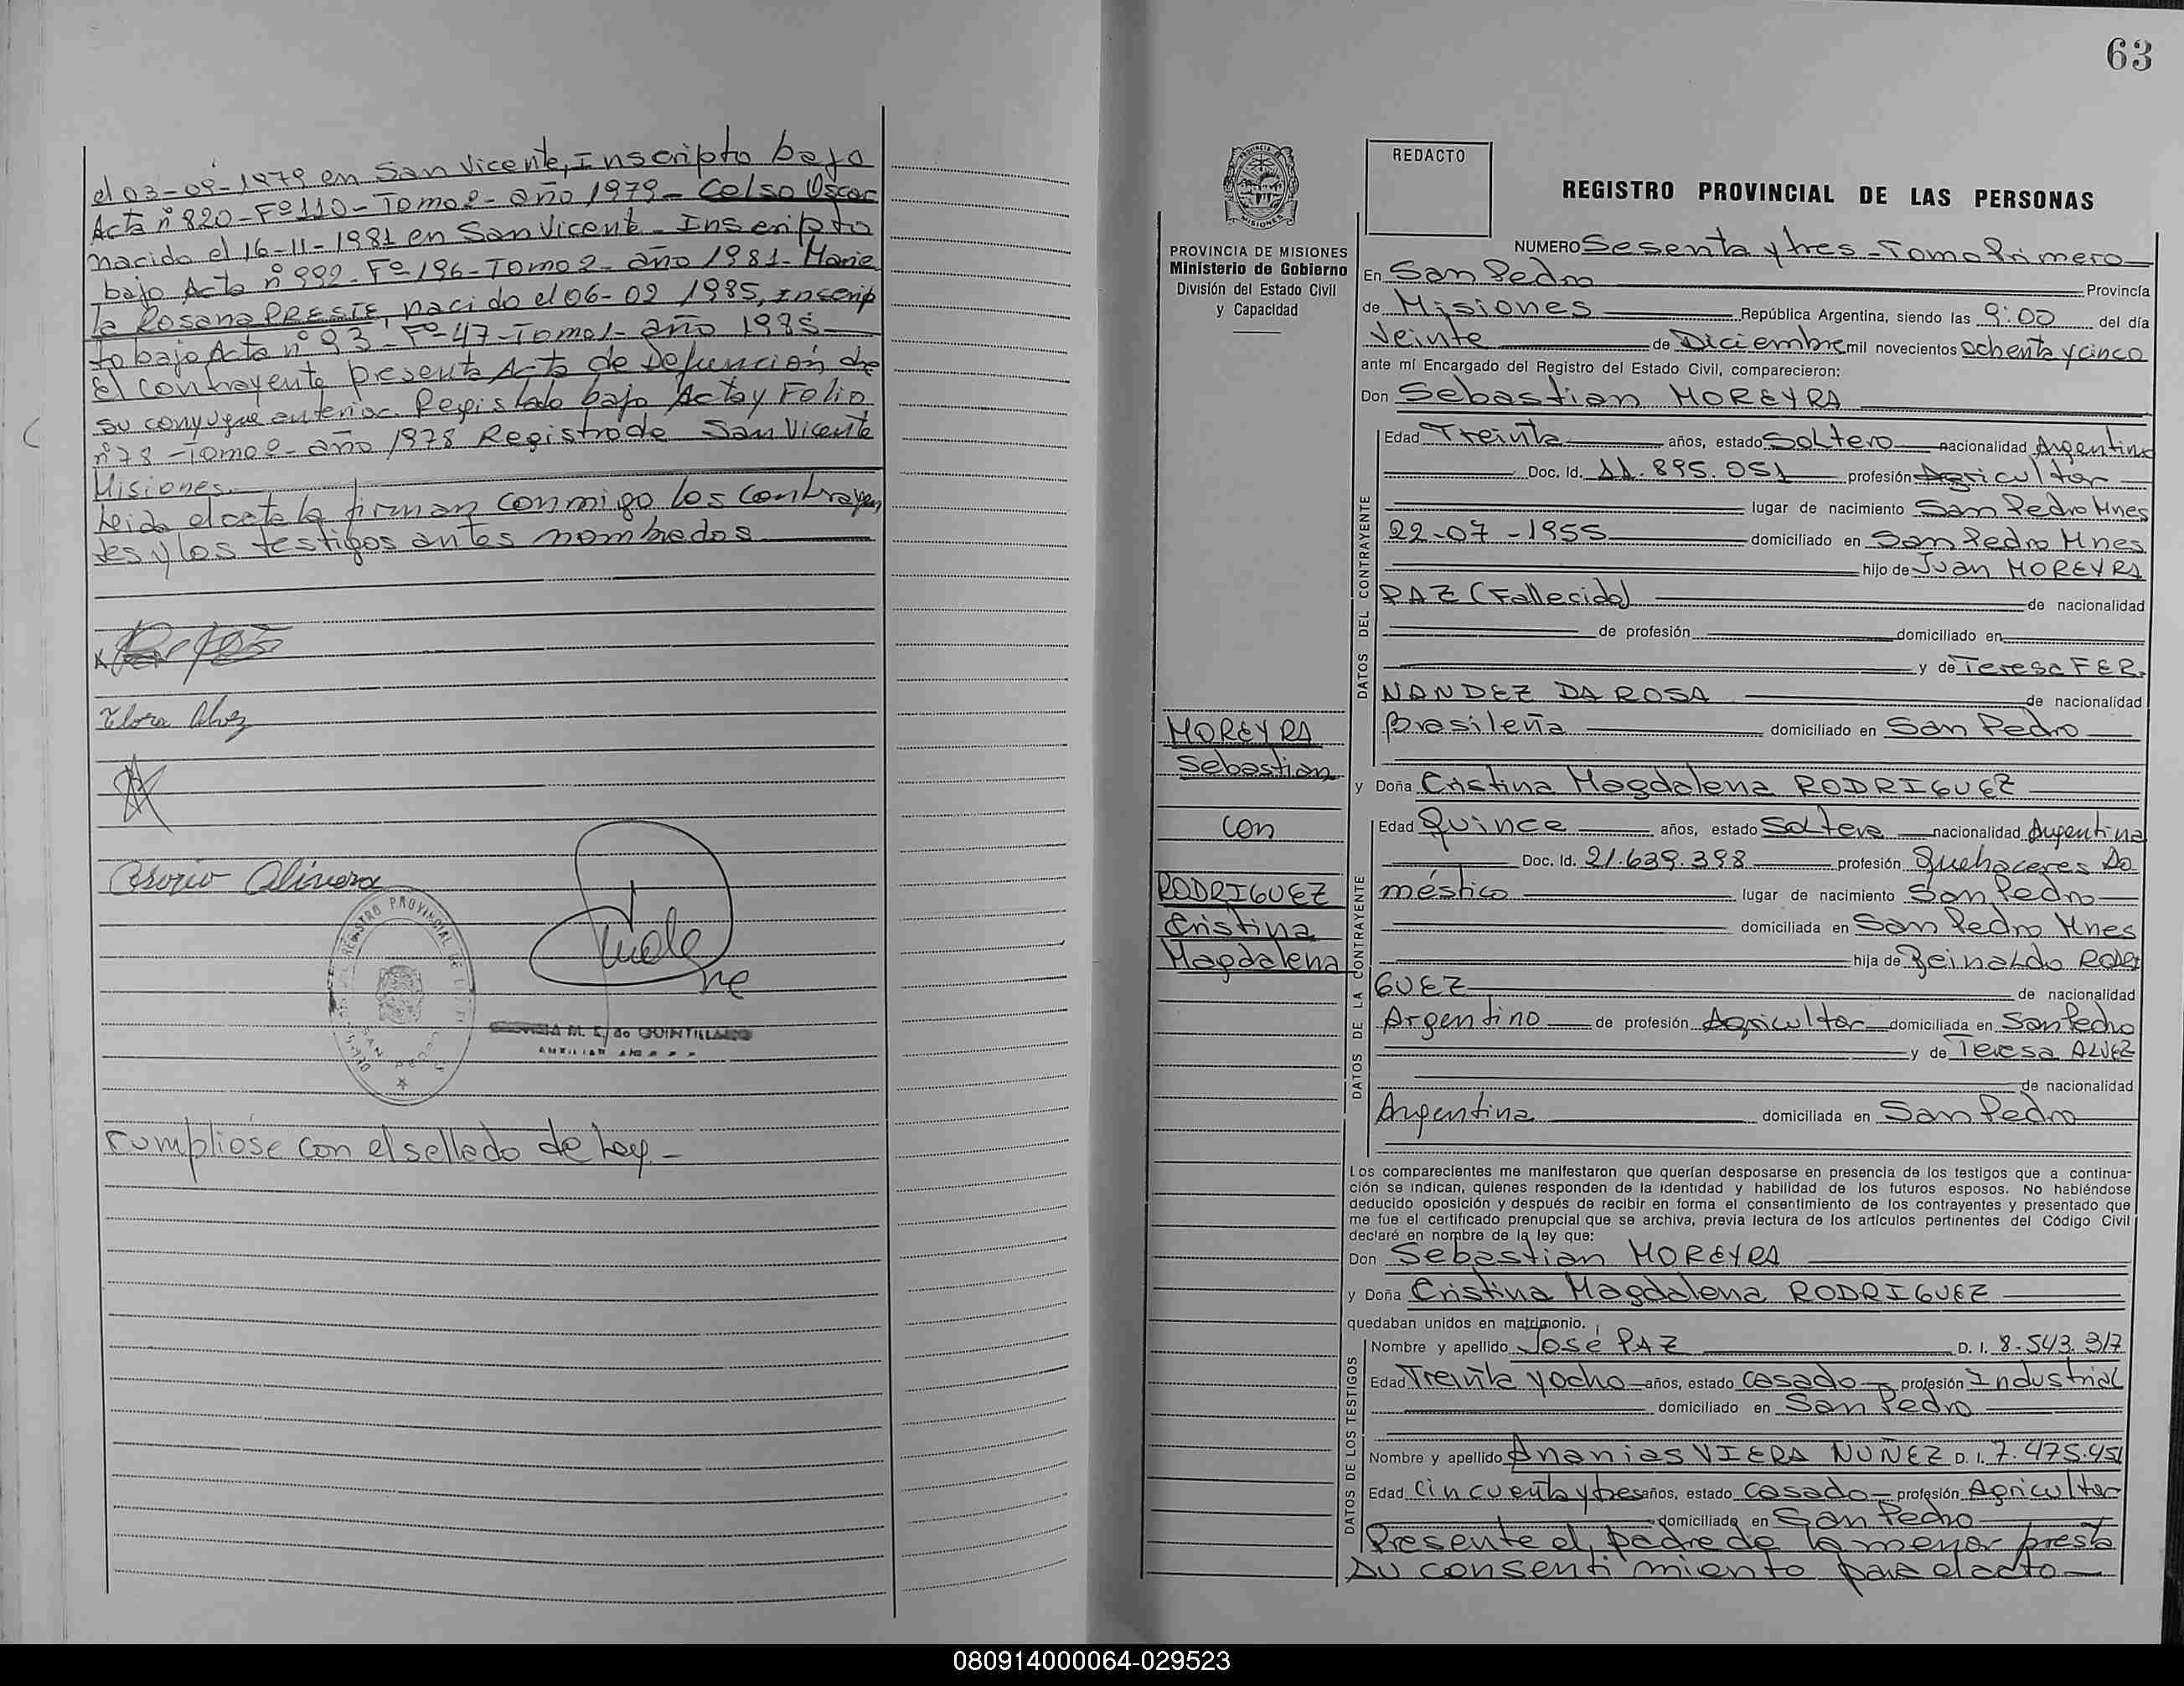 el 03-09-1979 en San Vicente, Inscripto bajo
Acta nº 820-Fº110-Tomo 2- año 1979- Celso Oscar
nacido el 16-11-1981 en San Vicente- Inscripto
bajo Acta nº 992-Fº196-Tomo 2- año 1981- Marie
la Rosana PRESTE, nacido el 06-02 1985, inscrip
to bajo Acta nº 93-Fº47-Tomo 1- año 1985-
El contrayente presenta Acta de Defunción de
su conyugue anterior. Registrado bajo Acta y Folio
nº 78-Tomo 2- año 1978 Registro de San Vicente
Misiones.
Leida el acta la firman conmigo los contrayen
tes y los testigos antes nombrados
Flora Alvez
Olivera
REGISTRO PROVINCIAL DE
M. E. de QUINTILLANO
AUXILIAR
Cumpliose con el sellado de Ley.-
63
PROVINCIA DE MISIONES
Ministerio de Gobierno
División del Estado Civil
y Capacidad
MOREYRA
Sebastian
con
RODRIGUEZ
Cristina
Magdalena
REDACTO
REGISTRO PROVINCIAL DE LAS PERSONAS
NUMERO Sesenta y tres - Tomo Primero
En San Pedro Provincia
de Misiones República Argentina, siendo las 9:00 del día
Veinte de Diciembre mil novecientos ochenta y cinco
ante mí Encargado del Registro del Estado Civil, comparecieron:
Don Sebastian MOREYRA
DATOS DEL CONTRAYENTE
Edad Treinta años, estado Soltero nacionalidad Argentina
Doc. Id. 11.895.051 profesión Agricultor
lugar de nacimiento San Pedro Mnes
22-07-1955 domiciliado en San Pedro Mnes
hijo de Juan MOREYRA
PAZ (Fallecido) de nacionalidad
de profesión domiciliado en
y de Teresa FER-
NANDEZ DA ROSA de nacionalidad
Brasileña domiciliado en San Pedro
y Doña Cristina Magdalena RODRIGUEZ
DATOS DE LA CONTRAYENTE
Edad Quince años, estado Soltera nacionalidad Argentina
Doc. Id. 21.639.398 profesión Quehaceres Do
méstico lugar de nacimiento San Pedro
domiciliada en San Pedro Mnes
hija de Reinaldo RODRI
GUEZ de nacionalidad
Argentino de profesión Agricultor domiciliada en San Pedro
y de Teresa ALVEZ
de nacionalidad
Argentina domiciliada en San Pedro
Los comparecientes me manifestaron que querían desposarse en presencia de los testigos que a continua-
ción se indican, quienes responden de la identidad y habilidad de los futuros esposos. No habiéndose
deducido oposición y después de recibir en forma el consentimiento de los contrayentes y presentado que
me fue el certificado prenupcial que se archiva, previa lectura de los artículos pertinentes del Código Civil
declaré en nombre de la ley que:
Don Sebastian MOREYRA
y Doña Cristina Magdalena RODRIGUEZ
quedaban unidos en matrimonio.
DATOS DE LOS TESTIGOS
Nombre y apellido José PAZ D. I. 8.543.317
Edad Treinta y ocho años, estado casado profesión Industrial
domiciliado en San Pedro
Nombre y apellido Ananias VIERA NUÑEZ D. I. 7.475.451
Edad Cincuenta y tres años, estado casado profesión Agricultor
domiciliado en San Pedro
Presente el padre de la menor presta
su consentimiento para el acto
080914000064-029523